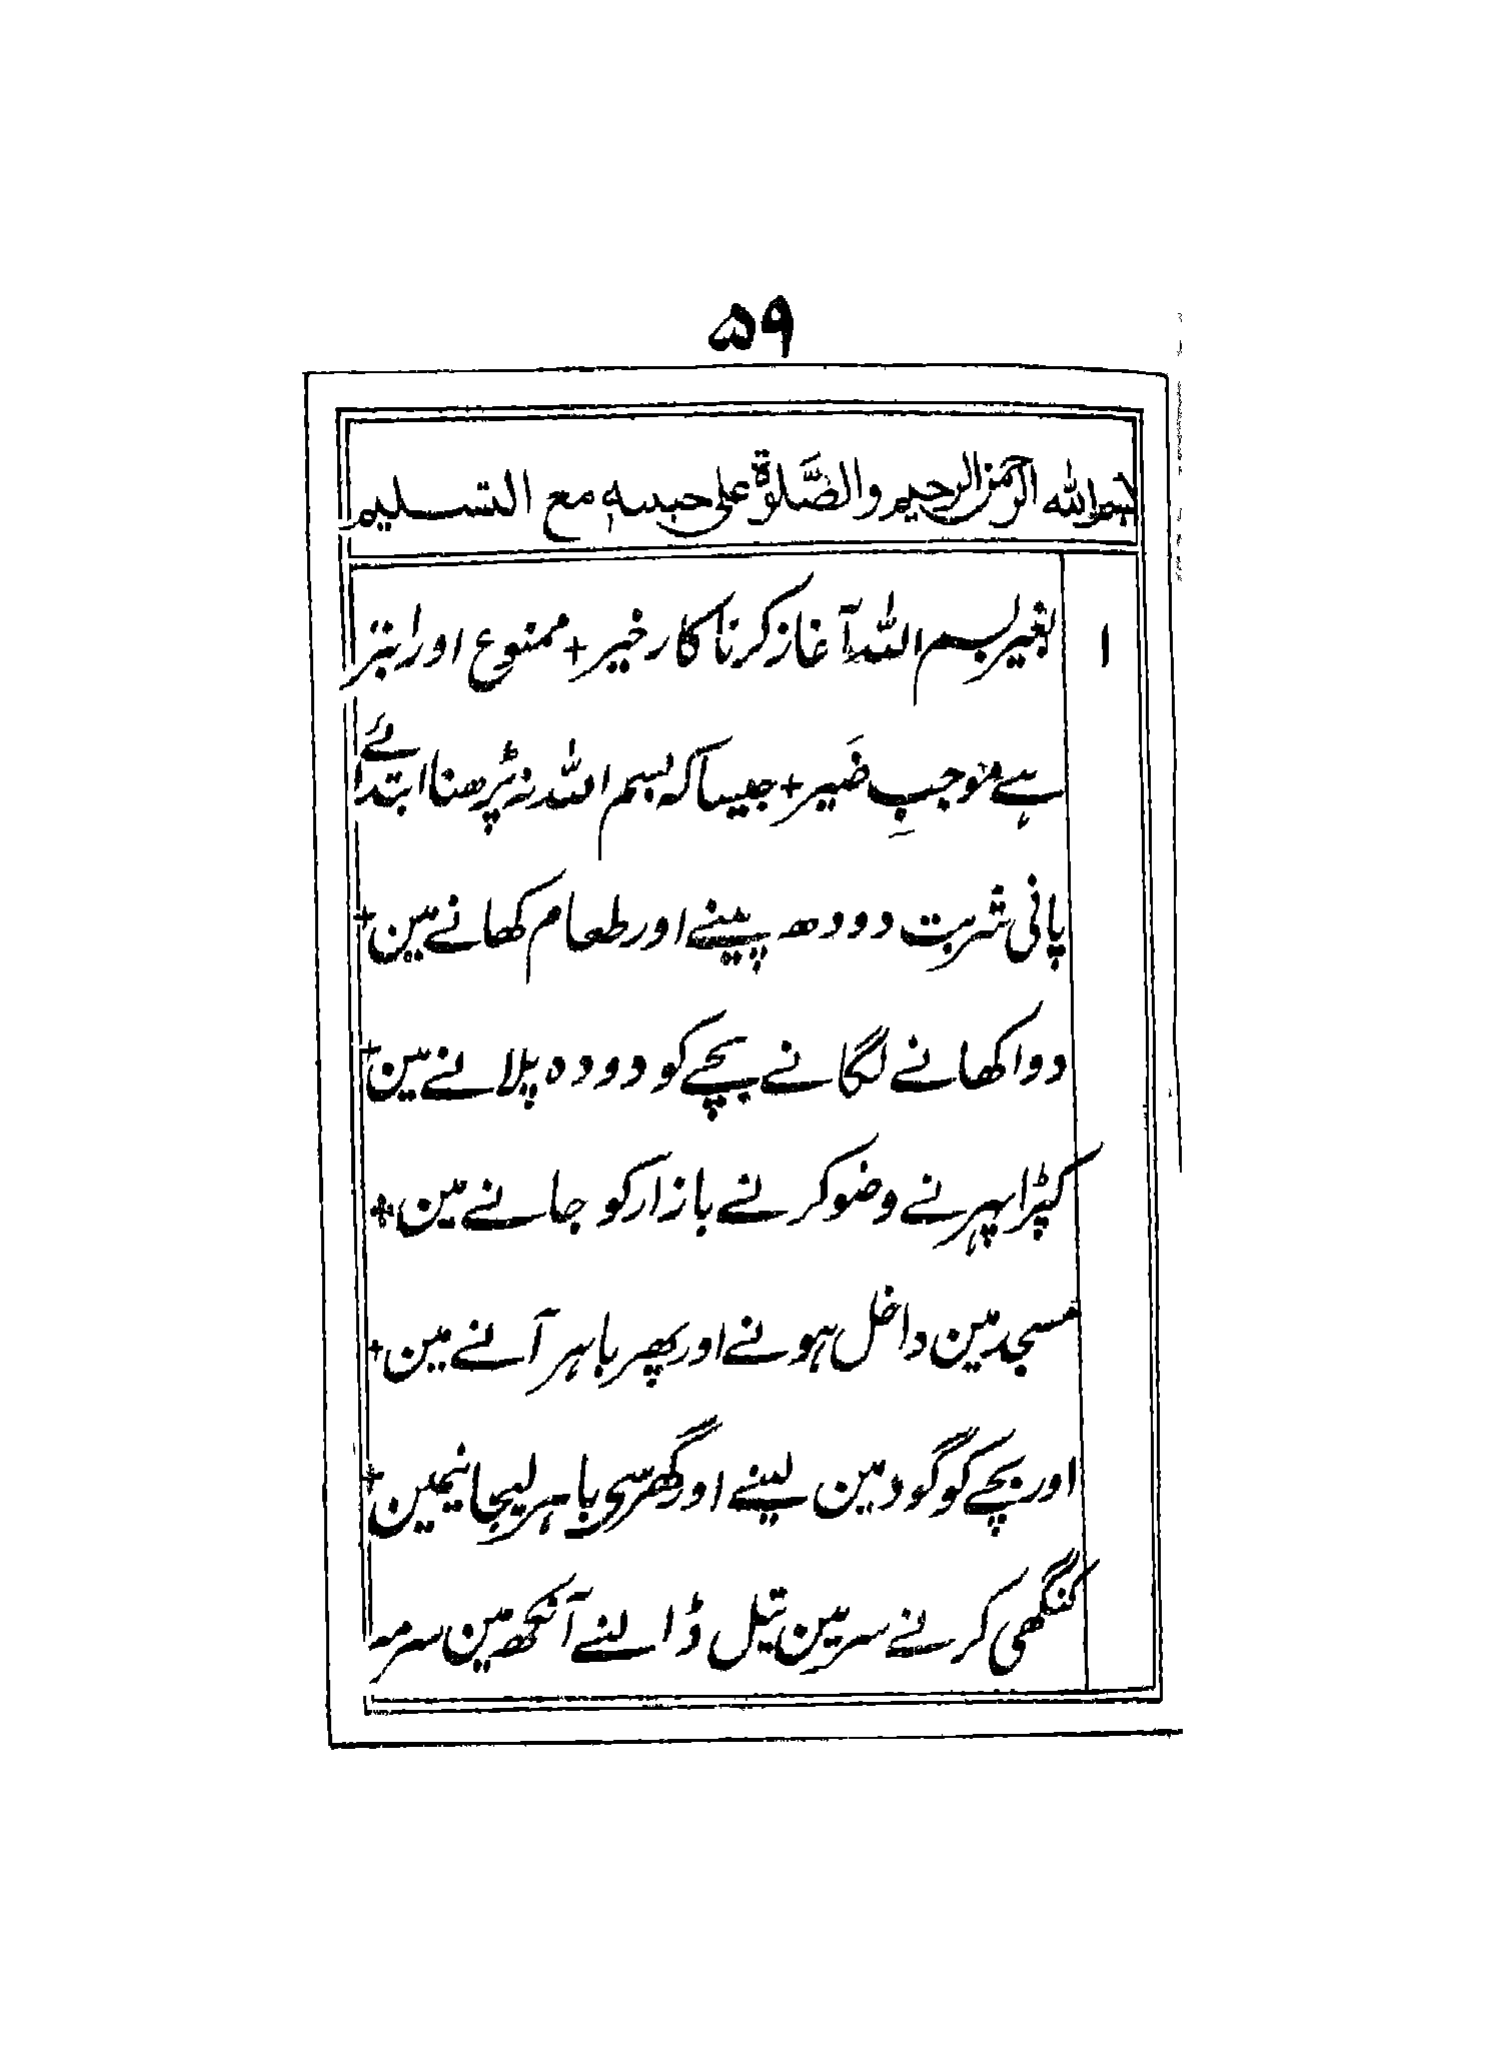 ۵۹
بسم الله الرحمن الرحيم والصَّلوة على حبيبه مع التسليم
۱ بغیر بسم اللہ آغاز کرنا کار خیر + ممنوع اور ابتر
ہے موجبِ ضَیر + جیسا کہ بسم اللہ نہ پڑھنا ابتدائے
پانی شربت دودھ پینے اور طعام کھانے مین +
دوا کھانے لگانے بچے کو دودہ پلانے مین +
کپڑا پہرنے وضو کرنے بازار کو جانے مین +
مسجد مین داخل ہونے اور پھر باہر آنے مین +
اور بچے کو گود مین لینے اور گھر سی باہر لیجانیمین +
کنگھی کرنے سر مین تیل ڈالنے آنکھ مین سرمہ